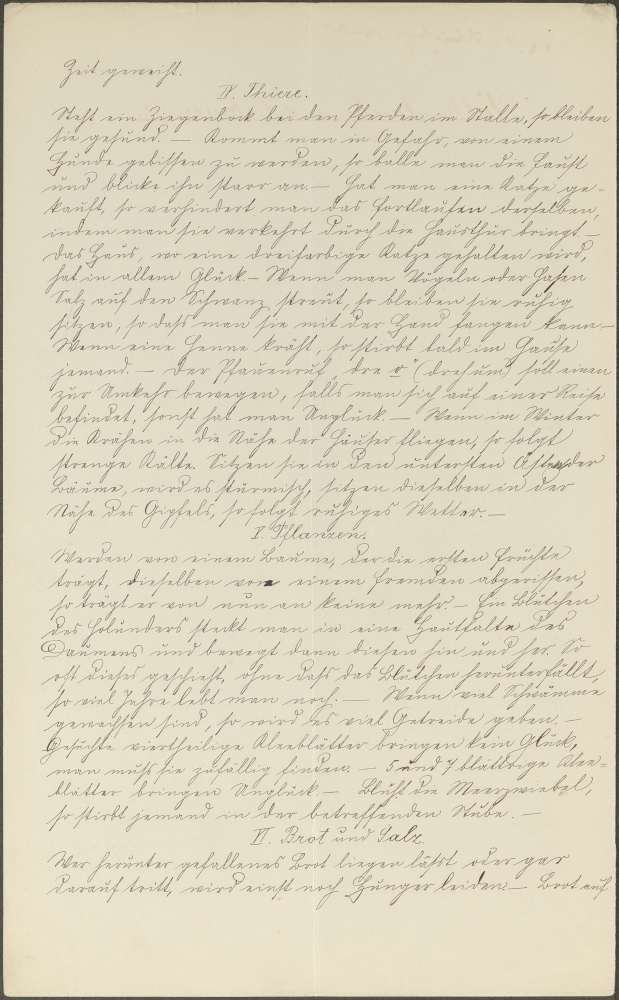 Zeit geweiht.
IV. Thiere.
Steht ein Ziegenbock bei den Pferden im Stalle, so bleiben
sie gesund. — Kommt man in Gefahr, von einem
Hunde gebissen zu werden, so balle man die Faust
und blicke ihn starr an. — Hat man eine Katze ge-
kauft, so verhindert man das Fortlaufen derselben,
indem man sie verkehrt durch die Hausthür bringt. —
Das Haus, wo eine dreifarbige Katze gehalten wird,
hat in allem Glück. — Wenn man Vögeln oder Hasen
Salz auf den Schwanz streut, so bleiben sie ruhig
sitzen, so dass man sie mit der Hand fangen kann. —
Wenn eine Henne kräht, so stirbt bald im Hause
jemand. — Der Pfauenruf „dre o" (dreh um) soll einen
zur Umkehr bewegen, falls man sich auf einer Reise
befindet, sonst hat man Unglück. — Wenn im Winter
die Krähen in die Nähe der Häuser fliegen, so folgt
strenge Kälte. Sitzen sie in den untersten Ästen der
Bäume, wird es stürmisch, sitzen dieselben in der
Nähe des Gipfels, so folgt ruhiges Wetter. —
V. Pflanzen.
Werden von einem Baume, der die ersten Früchte
trägt, dieselben von einem Fremden abgerissen,
so trägt er von nun an keine mehr. — Ein Blütchen
des Holunders steckt man in eine Hautfalte des
Daumens und bewegt dann diesen hin und her. So
oft dieses geschieht, ohne dass das Blütchen herunterfällt,
so viel Jahre lebt man noch. — Wenn viel Schwämme
gewachsen sind, so wird es viel Getreide geben. —
Gesuchte viertheilige Kleeblätter bringen kein Glück,
man muss sie zufällig finden. — 5 und 7 blättrige Klee-
blätter bringen Unglück. — Blüht die Meerzwiebel,
so stirbt jemand in der betreffenden Stube. —
VI. Brot und Salz.
Wer herunter gefallenes Brot liegen lässt oder gar
darauf tritt, wird einst noch Hunger leiden. — Brot auf